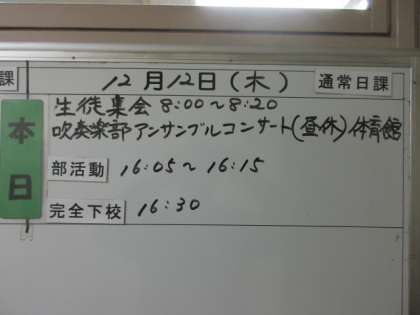 課 12月12日(木) 通常日課
本日
生徒集会 8:00~8:20
吹奏楽部アンサンブルコンサート(昼休)体育館
部活動 16:05~16:15
完全下校 16:30